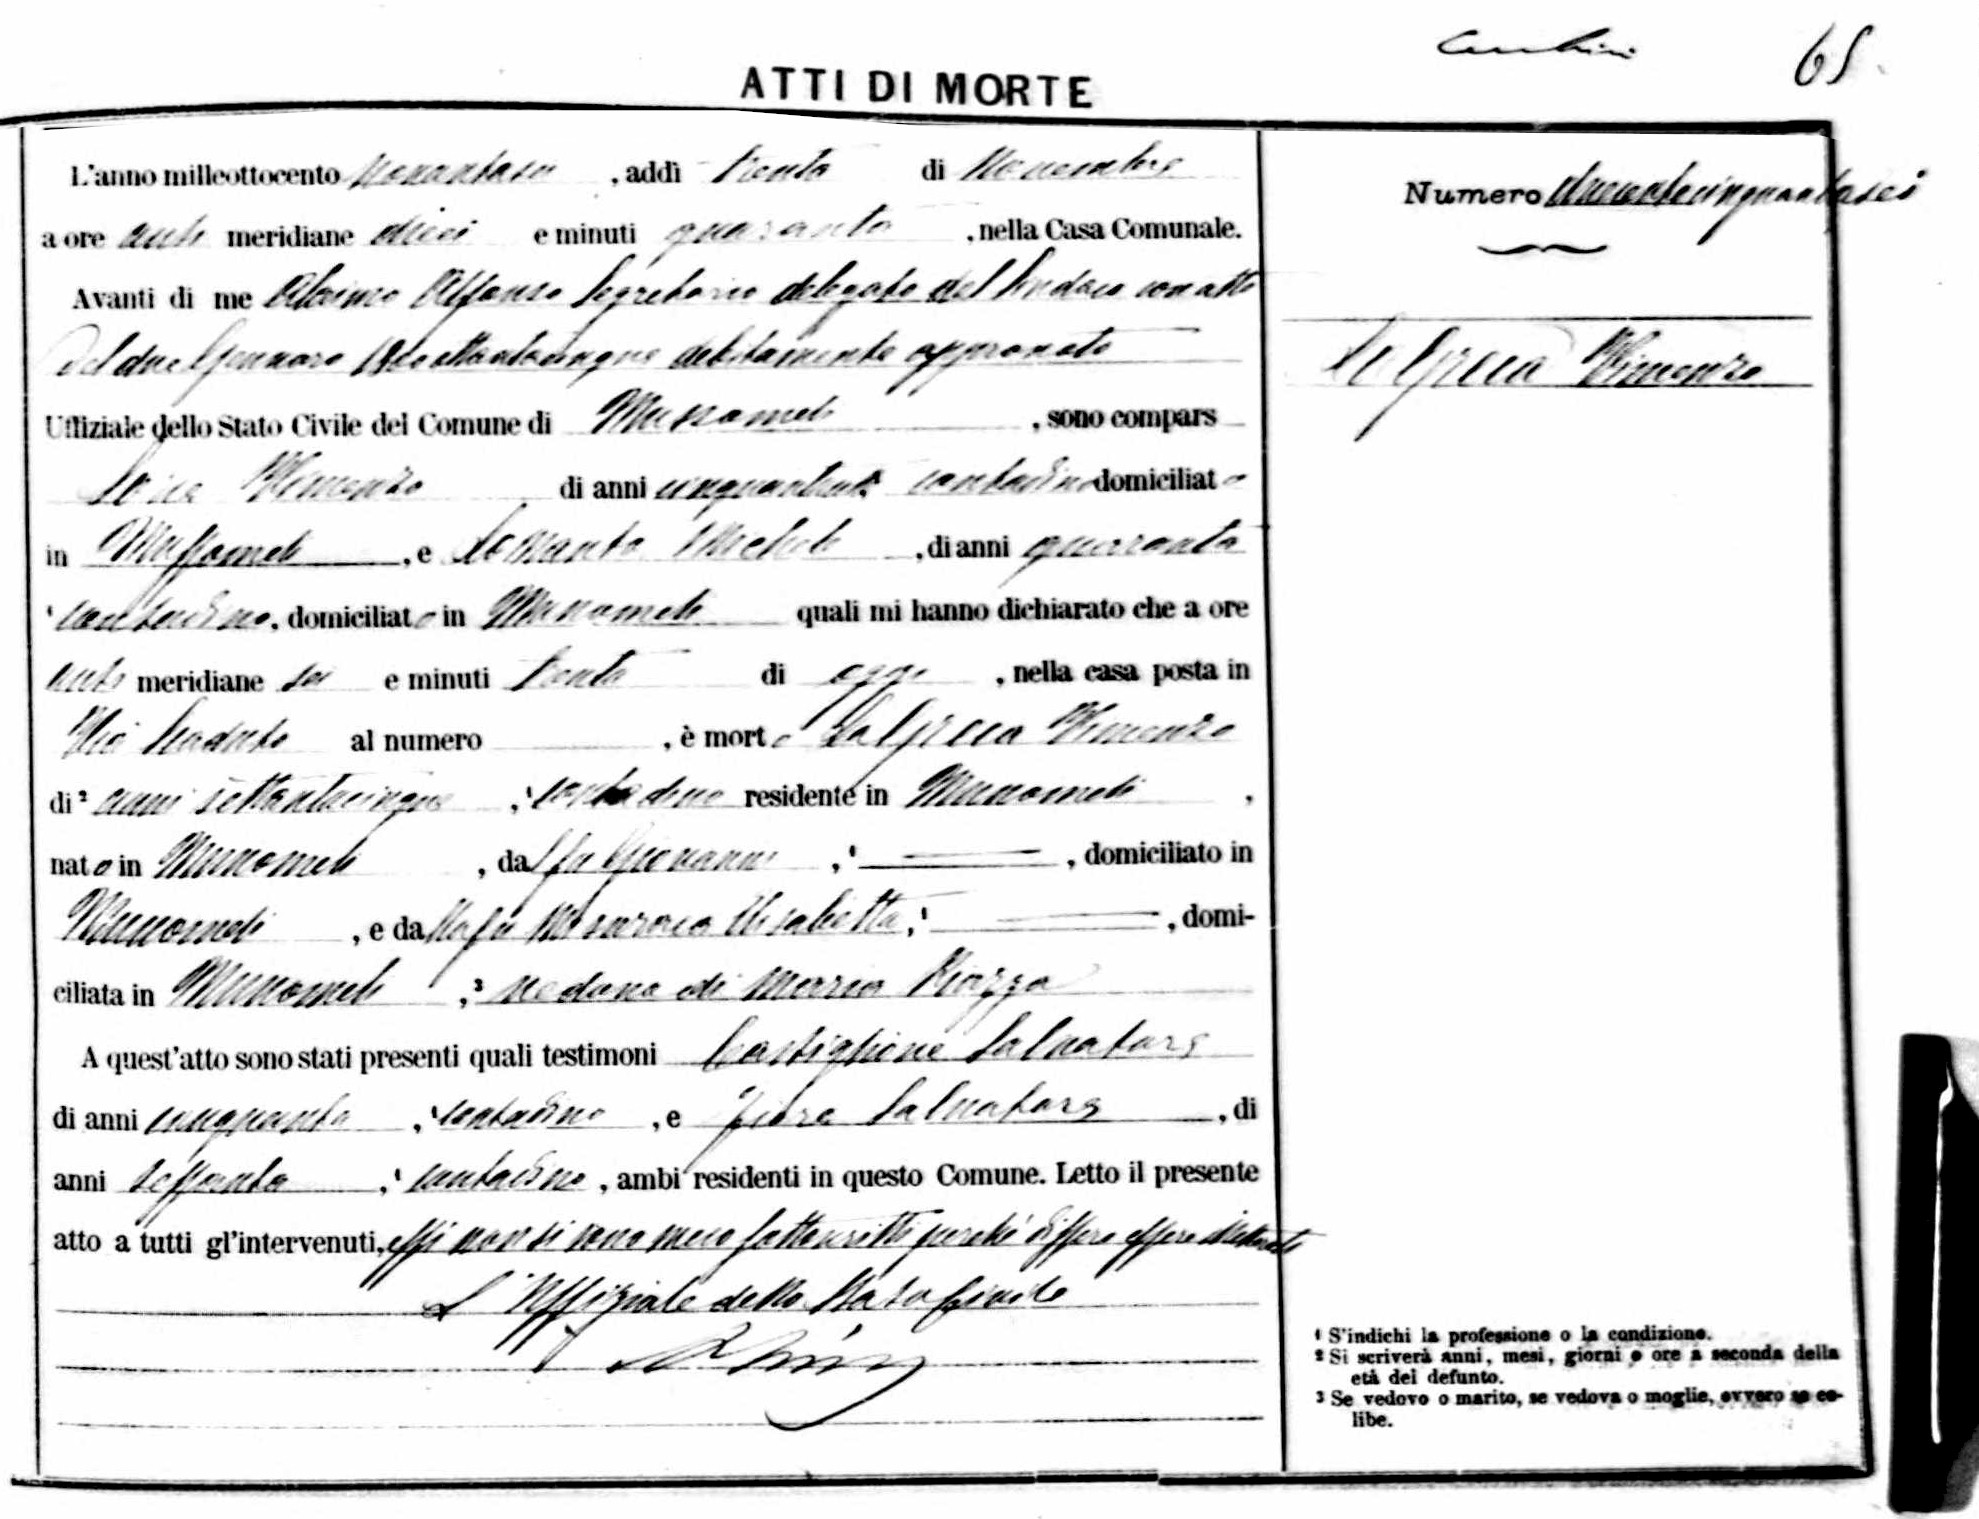 65
ATTI DI MORTE
Numero duecentocinquantasei
La Greca Vincenzo
L'anno milleottocento novantasei, addì trenta di Novembre
a ore anti meridiane dieci e minuti quaranta, nella Casa Comunale.
Avanti di me Alfonso Segretario delegato del Sindaco con atto
del due Gennaro 1800ottantacinque debitamente approvato
Uffiziale dello Stato Civile del Comune di Mussomeli, sono compars
Vincenzo di anni contadino domiciliato
in Mussomeli, e Lomanto Michele, di anni quaranta
¹ contadino, domiciliato in Mussomeli quali mi hanno dichiarato che a ore
anti meridiane sei e minuti trenta di oggi, nella casa posta in
Via Scaduto al numero , è morto La Greca Vincenzo
di ² anni settantacinque, ¹ contadino residente in Mussomeli,
nato in Mussomeli, dal fu Giovanni, ¹ , domiciliato in
Mussomeli, e dalla fu Elisabetta, ¹ , domi-
ciliata in Mussomeli, ³ vedovo di Maria Piazza
A quest'atto sono stati presenti quali testimoni Castiglione Salvatore
di anni cinquanta, ¹ contadino, e Fiore Salvatore, di
anni sessanta, ¹ contadino, ambi residenti in questo Comune. Letto il presente
atto a tutti gl'intervenuti, essi non si sono meco sottoscritti perché dissero essere illetterati
L'Uffiziale dello Stato Civile
¹ S'indichi la professione o la condizione.
² Si scriverà anni, mesi, giorni o ore a seconda della
età del defunto.
³ Se vedovo o marito, se vedova o moglie, ovvero se ce-
libe.